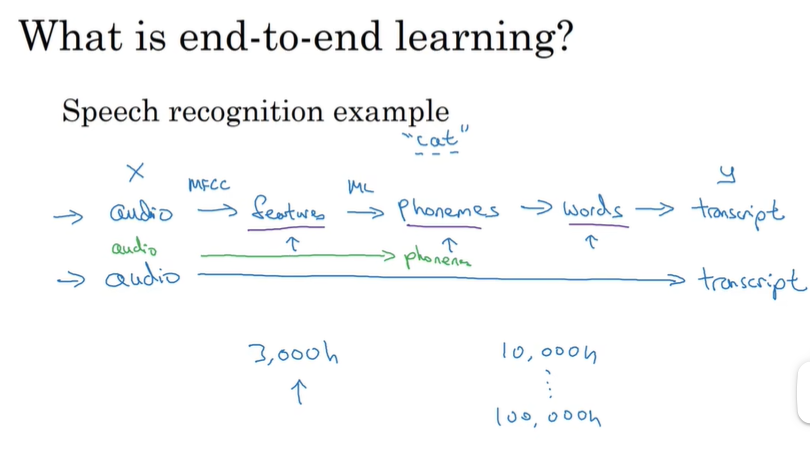 What is end-to-end learning?
Speech recognition example
"cat"
X y
MFCC ML
→ audio → features → phonemes → words → transcript
↑ ↑ ↑
audio → phonemes
→ audio → transcript
3,000h 10,000h
↑ ⋮
100,000h